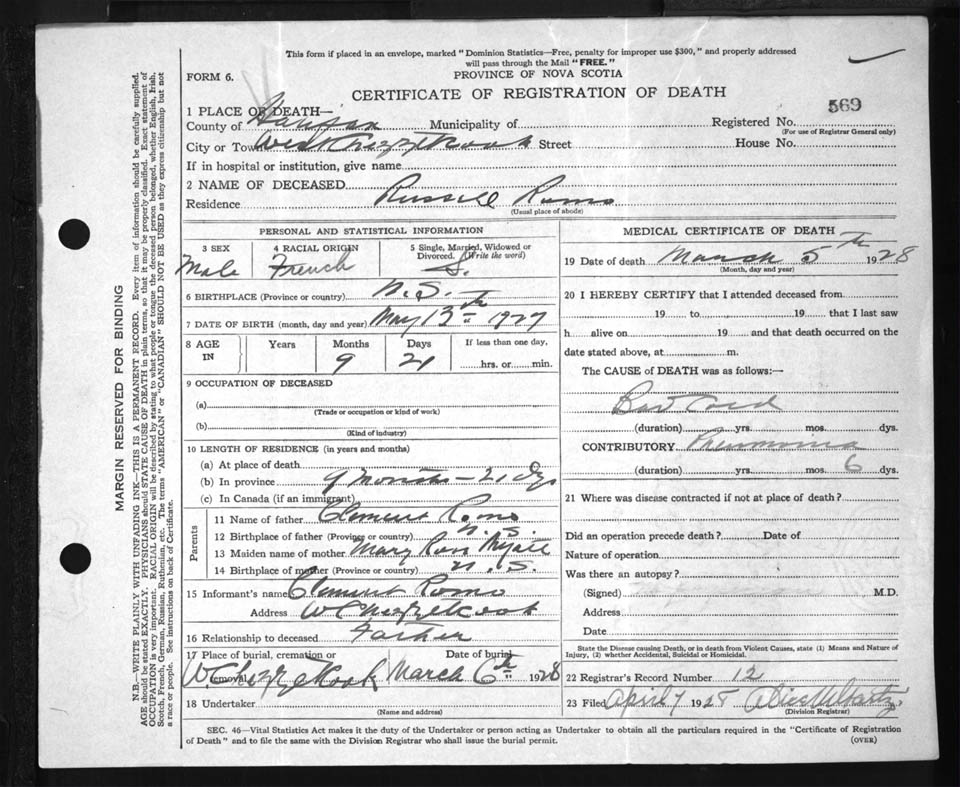 This form if placed in an envelope, marked "Dominion Statistics—Free, penalty for improper use $300," and properly addressed
will pass through the Mail "FREE."
FORM 6.
PROVINCE OF NOVA SCOTIA
CERTIFICATE OF REGISTRATION OF DEATH
569
1 PLACE OF DEATH—
County of Halifax Municipality of
Registered No.
(For use of Registrar General only)
City or Town West Chezzetcook Street House No.
If in hospital or institution, give name
2 NAME OF DECEASED Russell Romo
Residence
(Usual place of abode)
PERSONAL AND STATISTICAL INFORMATION
3 SEX
Male
4 RACIAL ORIGIN
French
5 Single, Married, Widowed or
Divorced. (Write the word)
S.
6 BIRTHPLACE (Province or country) N.S.
7 DATE OF BIRTH (month, day and year) May 13th 1927
8 AGE
IN
Years
Months
9
Days
21
If less than one day,
hrs. or min.
9 OCCUPATION OF DECEASED
(a)
(Trade or occupation or kind of work)
(b)
(Kind of industry)
10 LENGTH OF RESIDENCE (in years and months)
(a) At place of death
(b) In province 9 Months — 21 dys
(c) In Canada (if an immigrant)
Parents
11 Name of father Clement Romo
12 Birthplace of father (Province or country) N.S.
13 Maiden name of mother Mary Myatt
14 Birthplace of mother (Province or country) N.S.
15 Informant's name Clement Romo
Address W Chezzetcook
16 Relationship to deceased Father
17 Place of burial, cremation or
removal W Chezzetcook
Date of burial
March 6th 1928
18 Undertaker
(Name and address)
MEDICAL CERTIFICATE OF DEATH
19 Date of death March 5th 1928
(Month, day and year)
20 I HEREBY CERTIFY that I attended deceased from
19 to 19 that I last saw
h alive on 19 and that death occurred on the
date stated above, at m.
The CAUSE of DEATH was as follows:—
Bad Cold
(duration) yrs. mos. dys.
CONTRIBUTORY Pneumonia
(duration) yrs. mos. 6 dys.
21 Where was disease contracted if not at place of death?
Did an operation precede death? Date of
Nature of operation
Was there an autopsy?
(Signed) M.D.
Address
Date
State the Disease causing Death, or in death from Violent Causes, state (1) Means and Nature of
Injury, (2) whether Accidental, Suicidal or Homicidal.
22 Registrar's Record Number 12
23 Filed April 7 1928
(Division Registrar)
SEC. 46—Vital Statistics Act makes it the duty of the Undertaker or person acting as Undertaker to obtain all the particulars required in the "Certificate of Registration
of Death" and to file the same with the Division Registrar who shall issue the burial permit.
(OVER)
MARGIN RESERVED FOR BINDING
N.B.—WRITE PLAINLY WITH UNFADING INK—THIS IS A PERMANENT RECORD. Every item of information should be carefully supplied.
AGE should be stated EXACTLY. PHYSICIANS should STATE CAUSE OF DEATH in plain terms, so that it may be properly classified. Exact statement of
OCCUPATION is very important. RACIAL ORIGIN will be described by stating to what people or tongue the deceased person belonged, whether English, Irish,
Scotch, French, German, Russian, Ruthenian, etc. The terms "AMERICAN" or "CANADIAN" SHOULD NOT BE USED as they express citizenship but not
a race or people. See instructions on back of Certificate.